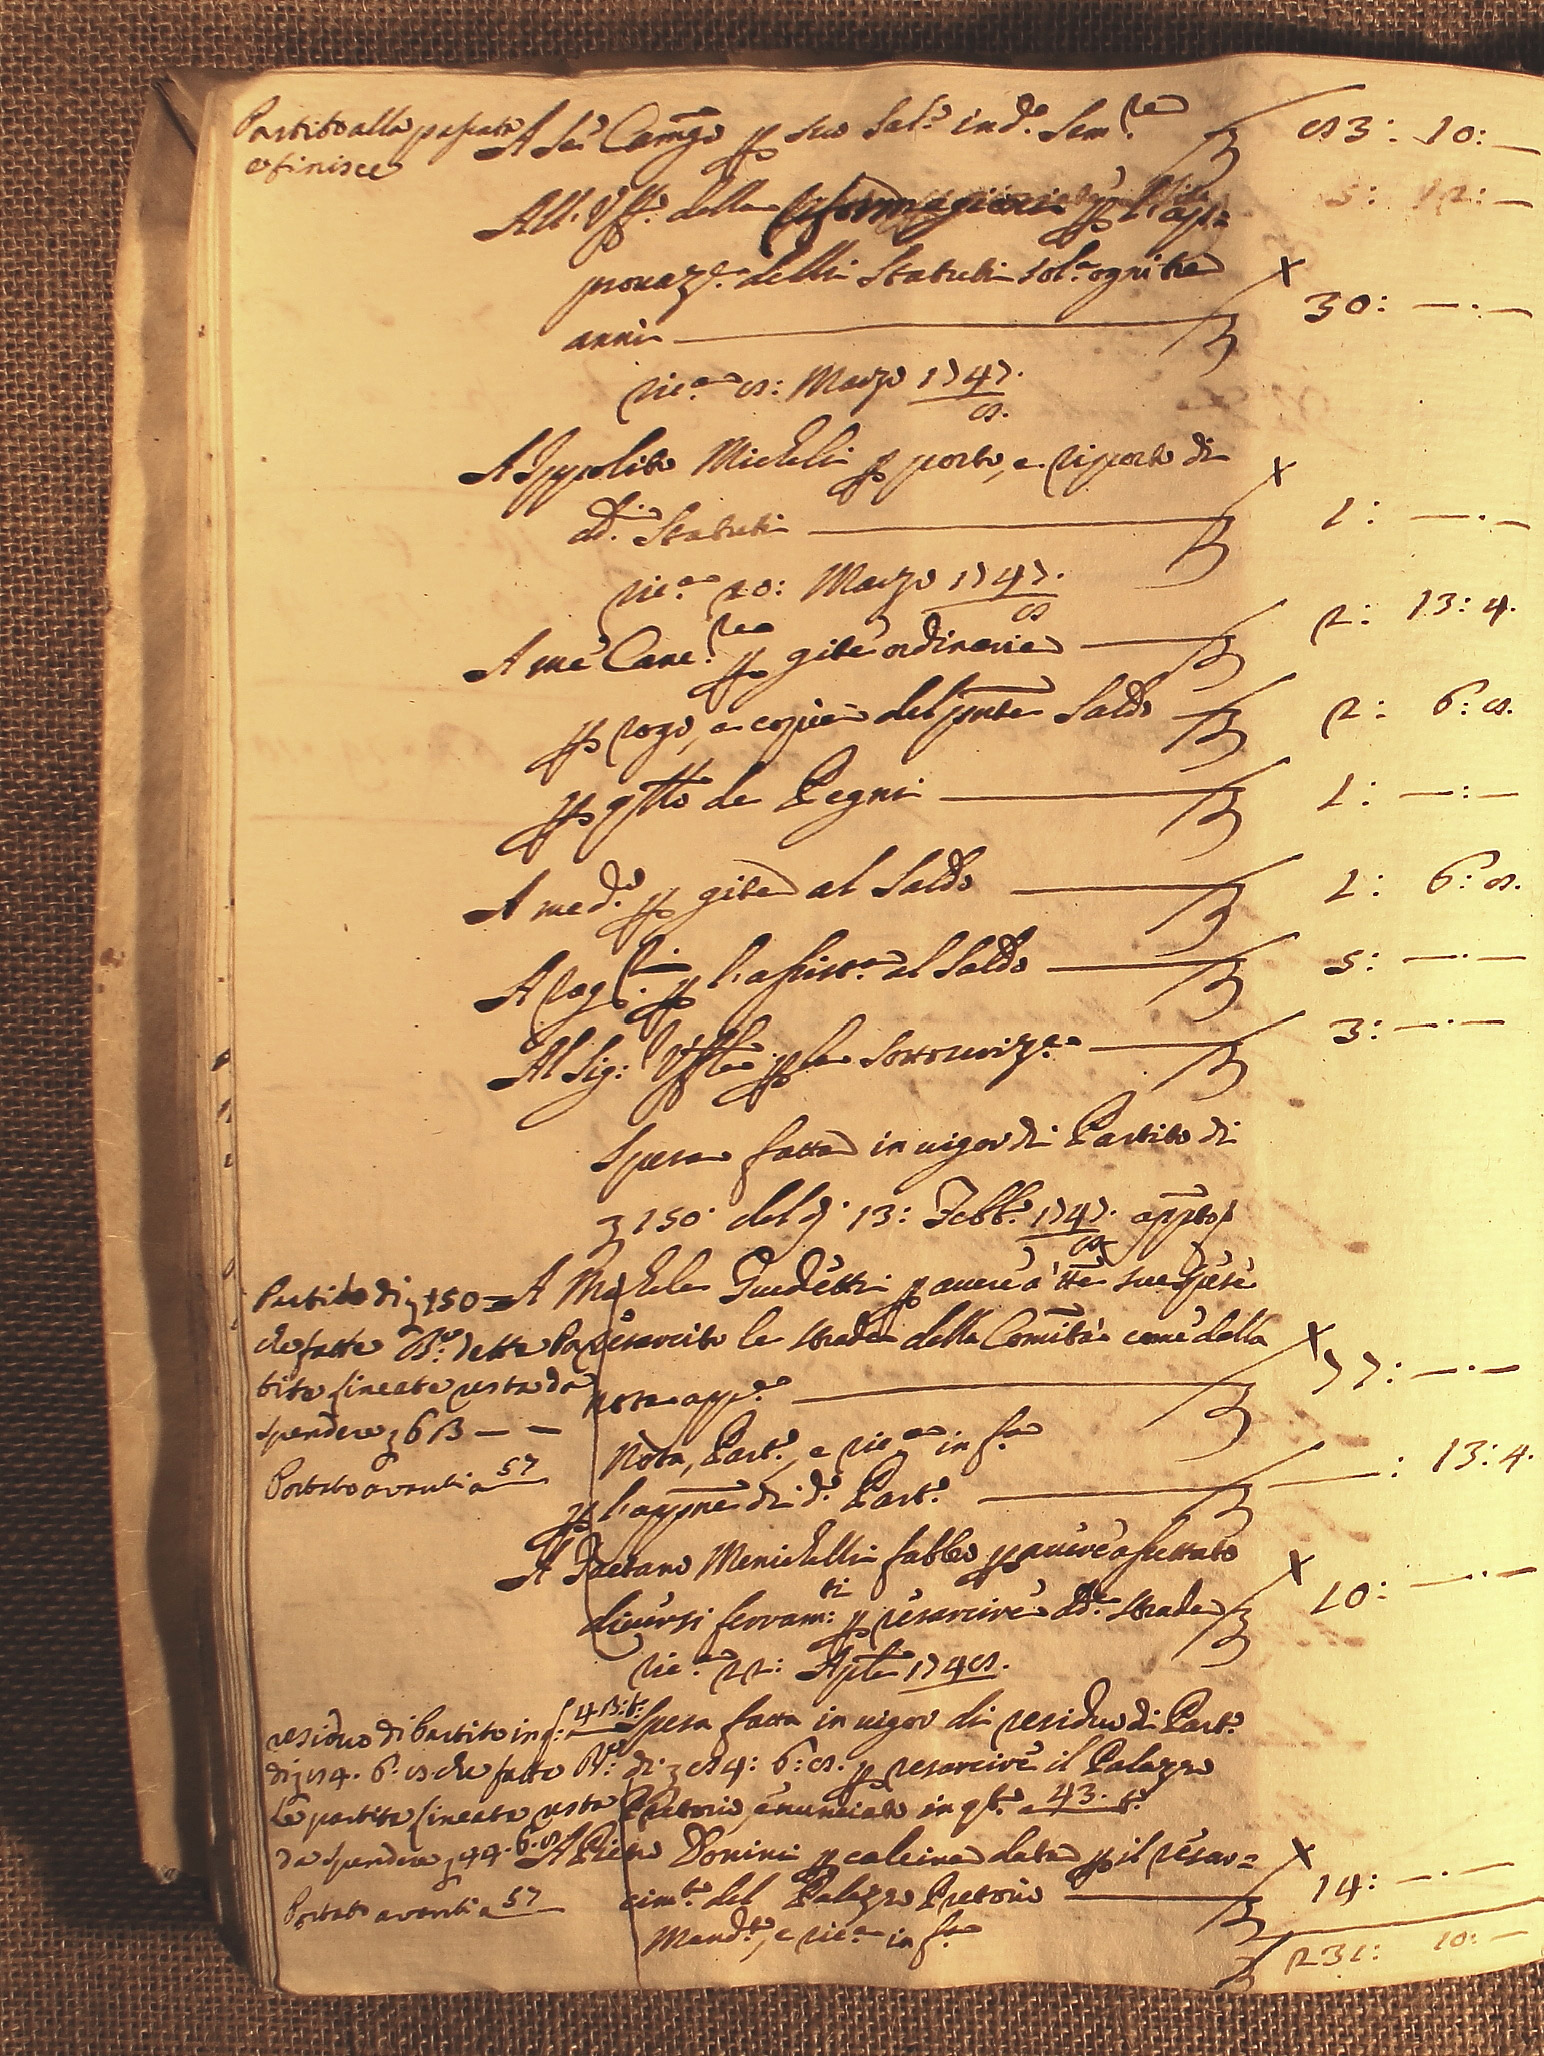 Partito alla passata
e finisce
A Ser Camgo p suo Sal.o in d.o Sem.re 83: 10: —
All Uff.o delle Riformagioni p l'ap= 5: 12: —
provaz.e delli Statuti sol.a ogni tre
anni 30: — · —
ric.a 8: Marzo 1747/8.
A Ippolito Micheli p porto, e riporto di
dd.i Statuti 1: — · —
ric.a 20: Marzo 1747/8.
A me Canc.re p gite ordinarie 2: 13: 4.
p rogo, e copie del pnte Saldo 2: 6: 8.
p gtto de Pegni 1: — : —
A med.o p gite al Saldo 1: 6: 8.
A rag.ri p l'assist.a al Saldo 5: — · —
Al Sig: Uffle p la sottoscriz.e 3: — · —
Spesa fatta in vigor di Partito di
z 150. del dì 13: Febb.o 1747/8. appto
Partito di z 150 =
che fatte B.o dette Par
tite lineate resta da
spendere z 63 — —
Portato avanti a 57
A Michele Guedetti p avere a tte sue spese
resarcito le strade della Comità come della
nota app.o 77: — · —
Nota, Part.o, e ric.a in f.a
p l'appne di d.o Part.o — : 13: 4.
A Gaetano Menichelli fabbro p avere assettato
diversi ferram:ti p resarcire dd.e strade 10: — · —
ric.a 22: Aple 1748.
residuo di Partito in q:o 43: t:
di z 84. 6. 8 che fatto B:o
le partite lineate resta
da spendere z 44. 6. 8
Portato avanti a 57
Spesa fatta in vigor di residuo di Part.o
di z 84: 6: 8. p resarcire il Palazzo
Pretorio, enunciato in q.to a 43. t.o
A Piero Donini p calcina data p il resar=
cim.to del Palazzo Pretorio 14: — · —
Mand.to, e ric.a in f.a
z 231: 10: —